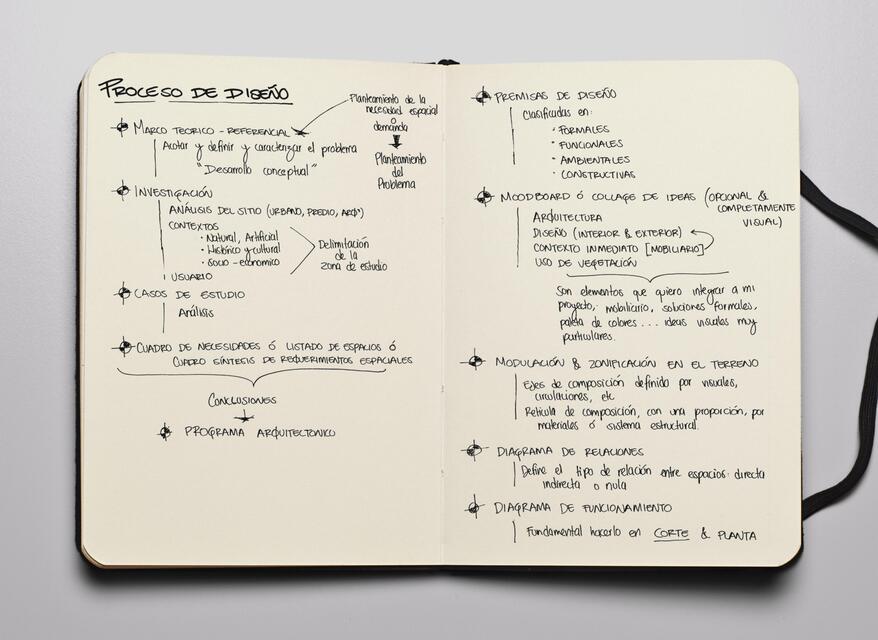 PROCESO DE DISEÑO
Planteamiento de la
necesidad espacial
ó
demanda
Planteamiento
del
Problema
MARCO TEORICO - REFERENCIAL
Acotar y definir y caracterizar el problema
"Desarrollo conceptual"
INVESTIGACIÓN
ANÁLISIS DEL SITIO (URBANO, PREDIO, ARQº)
CONTEXTOS
· Natural, Artificial
· Histórico y cultural
· Socio - económico
USUARIO
Delimitación
de la
zona de estudio
CASOS DE ESTUDIO
Análisis
CUADRO DE NECESIDADES Ó LISTADO DE ESPACIOS Ó
CUADRO SÍNTESIS DE REQUERIMIENTOS ESPACIALES
CONCLUSIONES
PROGRAMA ARQUITECTONICO
PREMISAS DE DISEÑO
Clasificadas en:
· FORMALES
· FUNCIONALES
· AMBIENTALES
· CONSTRUCTIVAS
MOODBOARD Ó COLLAGE DE IDEAS (OPCIONAL &
COMPLETAMENTE
VISUAL)
ARQUITECTURA
DISEÑO (INTERIOR & EXTERIOR)
CONTEXTO INMEDIATO [MOBILIARIO]
USO DE VEGETACIÓN
Son elementos que quiero integrar a mi
proyecto,: mobiliario, soluciones formales,
paleta de colores... ideas visuales muy
particulares.
MODULACIÓN & ZONIFICACIÓN EN EL TERRENO
Ejes de composición definido por visuales,
circulaciones, etc
Retícula de composición, con una proporción, por
materiales ó sistema estructural.
DIAGRAMA DE RELACIONES
Define el tipo de relación entre espacios: directa
indirecta o nula
DIAGRAMA DE FUNCIONAMIENTO
Fundamental hacerlo en CORTE & PLANTA